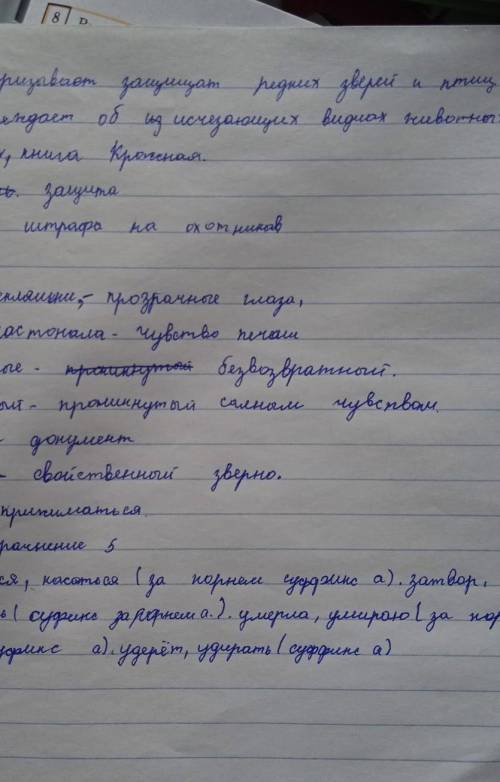 8
ризывает защищат редних зверей и птиц
еждает об из исчезающих видиах животны
х, книга Крожная.
защита
штрафа на охотников
скляшки,- прозрачные глаза,
астонала - чувство печаи
ые - проникнутый безвозвратный.
ый - проникнутый салным чувством.
- документ
- свойственный зверно.
прижиматься
рачнение 5
ся, касаться (за корнем суффикс а). затвор,
ь (суфикс за корнем а.). умерла, умираю (за кор
уфикс а). удерёт, удирать (суффикс а)